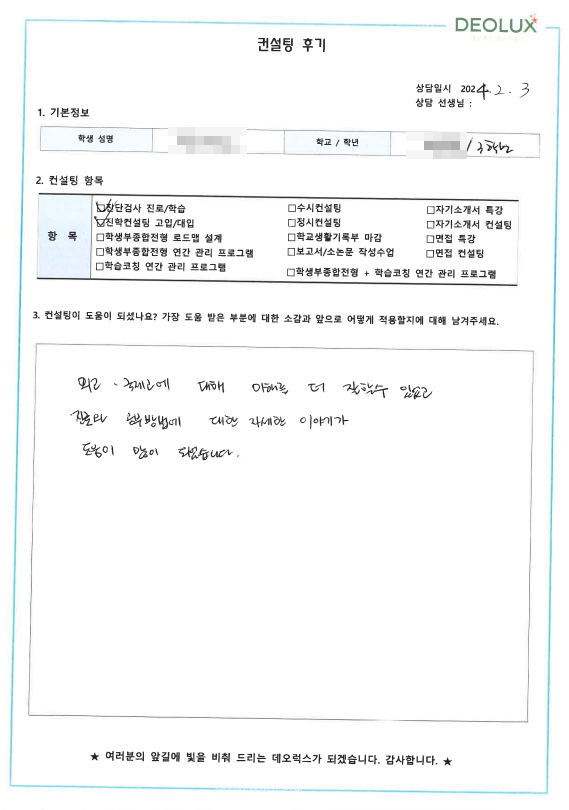 DEOLUX
컨설팅 후기
상담일시 2024. 2. 3
상담 선생님 :
1. 기본정보
학생 성명
학교 / 학년
/ 3학년
2. 컨설팅 항목
항 목
□진단검사 진로/학습 □수시컨설팅 □자기소개서 특강
□진학컨설팅 고입/대입 □정시컨설팅 □자기소개서 컨설팅
□학생부종합전형 로드맵 설계 □학교생활기록부 마감 □면접 특강
□학생부종합전형 연간 관리 프로그램 □보고서/소논문 작성수업 □면접 컨설팅
□학습코칭 연간 관리 프로그램 □학생부종합전형 + 학습코칭 연간 관리 프로그램
3. 컨설팅이 도움이 되셨나요? 가장 도움 받은 부분에 대한 소감과 앞으로 어떻게 적용할지에 대해 남겨주세요.
외고, 국제고에 대해 이해를 더 잘할수 있었고
진로와 공부방법에 대한 자세한 이야기가
도움이 많이 되었습니다.
★ 여러분의 앞길에 빛을 비춰 드리는 데오럭스가 되겠습니다. 감사합니다. ★